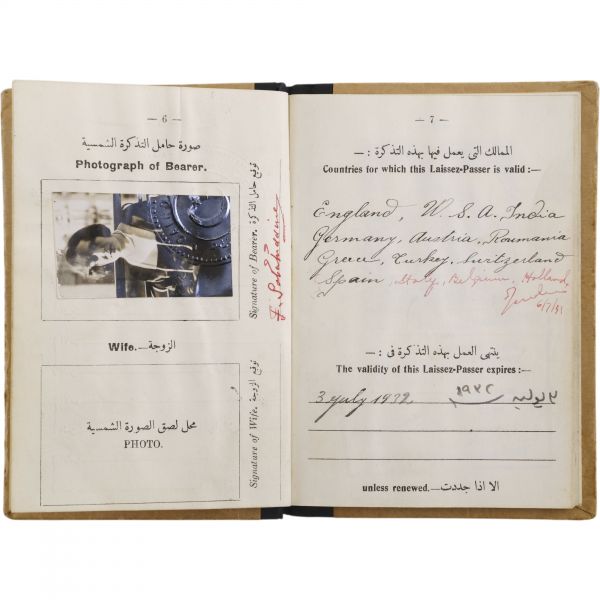 — 6 —
صورة حامل التذكرة الشمسية
Photograph of Bearer.
توقيع حامل التذكرة
Signature of Bearer.
Wife.— الزوجة.
محل لصق الصورة الشمسية
PHOTO.
توقيع الزوجة
Signature of Wife.
— 7 —
الممالك التى يعمل فيها بهذه التذكرة :—
Countries for which this Laissez-Passer is valid :—
England, U. S. A. India
Germany, Austria, Roumania
Greece, Turkey, Switzerland
Spain, Italy, Belgium, Holland,
6/7/31
ينتهى العمل بهذه التذكرة فى :—
The validity of this Laissez-Passer expires :—
3 July 1932 ٣ يوليه ١٩٣٢
unless renewed.— الا اذا جددت